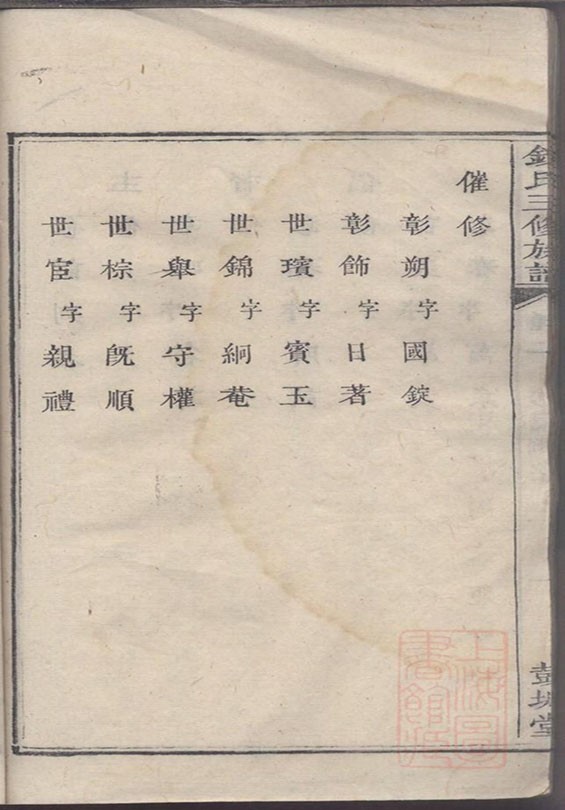 錢氏三修族譜
彭城堂
催修
彰朔字國錠
彰飾字日著
世璸字賓玉
世錦字絅菴
世舉字守權
世棕字旣順
世宦字親禮
上海圖書館藏